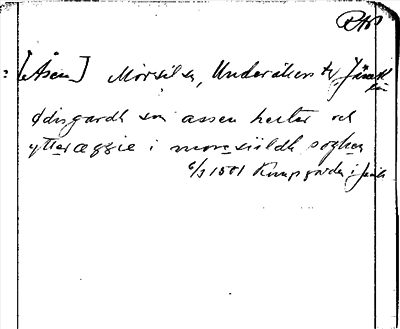 [Åsen] Mörsil sn, Undersåkers tg Jämtl
ödisgardh som assen heeter och
ytteræggie i moresiildh soghen
6/3 1501 Kungsgården i Jämtl